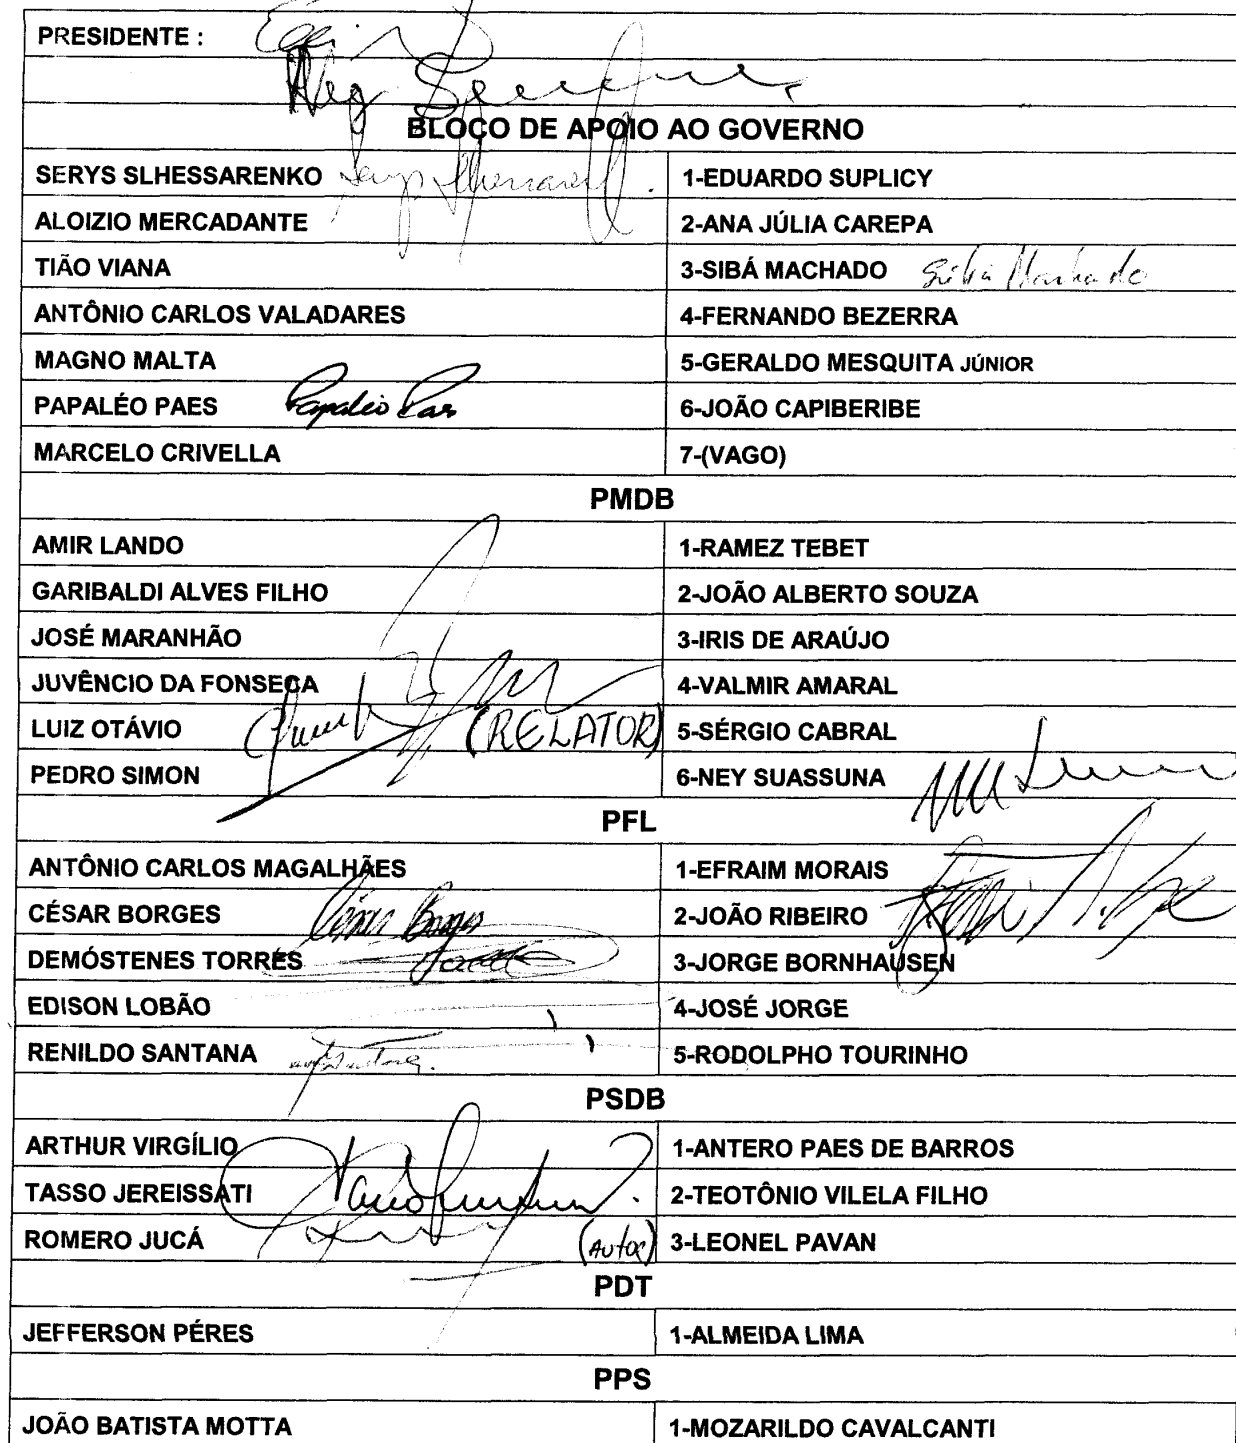 PRESIDENTE :
BLOCO DE APOIO AO GOVERNO
SERYS SLHESSARENKO 1-EDUARDO SUPLICY
ALOIZIO MERCADANTE 2-ANA JÚLIA CAREPA
TIÃO VIANA 3-SIBÁ MACHADO Sibá Machado
ANTÔNIO CARLOS VALADARES 4-FERNANDO BEZERRA
MAGNO MALTA 5-GERALDO MESQUITA JÚNIOR
PAPALÉO PAES Papaléo Paes 6-JOÃO CAPIBERIBE
MARCELO CRIVELLA 7-(VAGO)
PMDB
AMIR LANDO 1-RAMEZ TEBET
GARIBALDI ALVES FILHO 2-JOÃO ALBERTO SOUZA
JOSÉ MARANHÃO 3-IRIS DE ARAÚJO
JUVÊNCIO DA FONSECA 4-VALMIR AMARAL
LUIZ OTÁVIO (RELATOR) 5-SÉRGIO CABRAL
PEDRO SIMON 6-NEY SUASSUNA
PFL
ANTÔNIO CARLOS MAGALHÃES 1-EFRAIM MORAIS
CÉSAR BORGES César Borges 2-JOÃO RIBEIRO
DEMÓSTENES TORRES 3-JORGE BORNHAUSEN
EDISON LOBÃO 4-JOSÉ JORGE
RENILDO SANTANA 5-RODOLPHO TOURINHO
PSDB
ARTHUR VIRGÍLIO 1-ANTERO PAES DE BARROS
TASSO JEREISSATI 2-TEOTÔNIO VILELA FILHO
ROMERO JUCÁ (AUTOR) 3-LEONEL PAVAN
PDT
JEFFERSON PÉRES 1-ALMEIDA LIMA
PPS
JOÃO BATISTA MOTTA 1-MOZARILDO CAVALCANTI